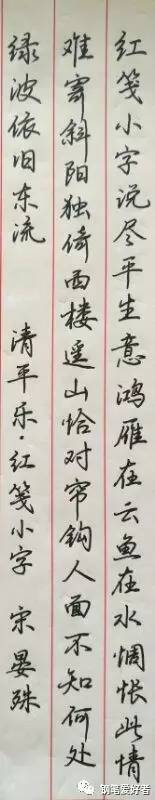 红笺小字说尽平生意鸿雁在云鱼在水惆怅此情
难寄斜阳独倚西楼遥山恰对帘钩人面不知何处
绿波依旧东流 清平乐·红笺小字 宋 晏殊
钢笔爱好者